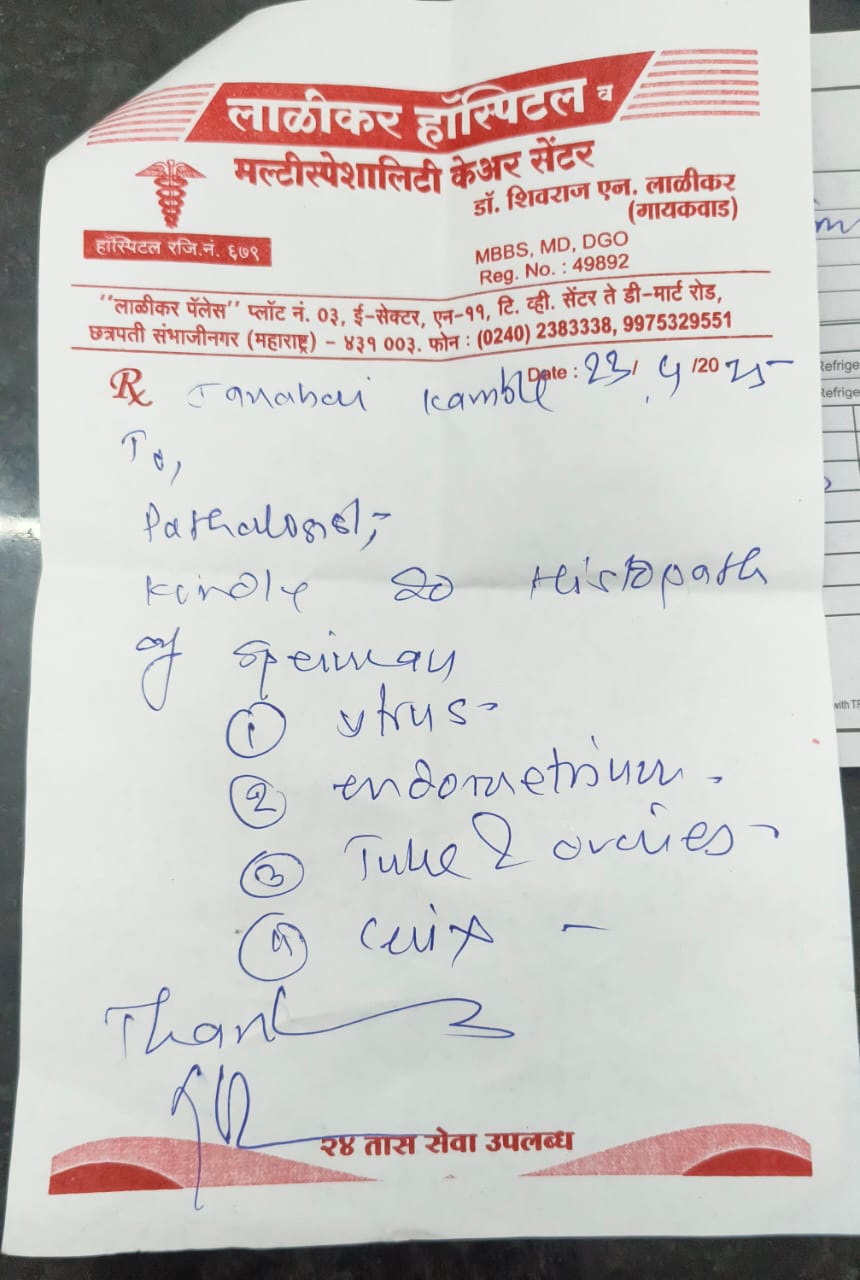 लाळीकर हॉस्पिटल व
मल्टीस्पेशालिटी केअर सेंटर
डॉ. शिवराज एन. लाळीकर
(गायकवाड)
हॉस्पिटल रजि.नं. ६७९
MBBS, MD, DGO
Reg. No. : 49892
"लाळीकर पॅलेस" प्लॉट नं. ०३, ई-सेक्टर, एन-११, टि. व्ही. सेंटर ते डी-मार्ट रोड,
छत्रपती संभाजीनगर (महाराष्ट्र) - ४३१ ००३. फोन : (0240) 2383338, 9975329551
Date : 23/ 4 /20 25
Rx Janabai Kamble
To,
Pathologist,
Kindly do Histopath
of speciman
① utrus-
② endometrium.
③ Tube & ovaries-
④ cervix -
Thank
२४ तास सेवा उपलब्ध
Refrige
Refrige
with TF